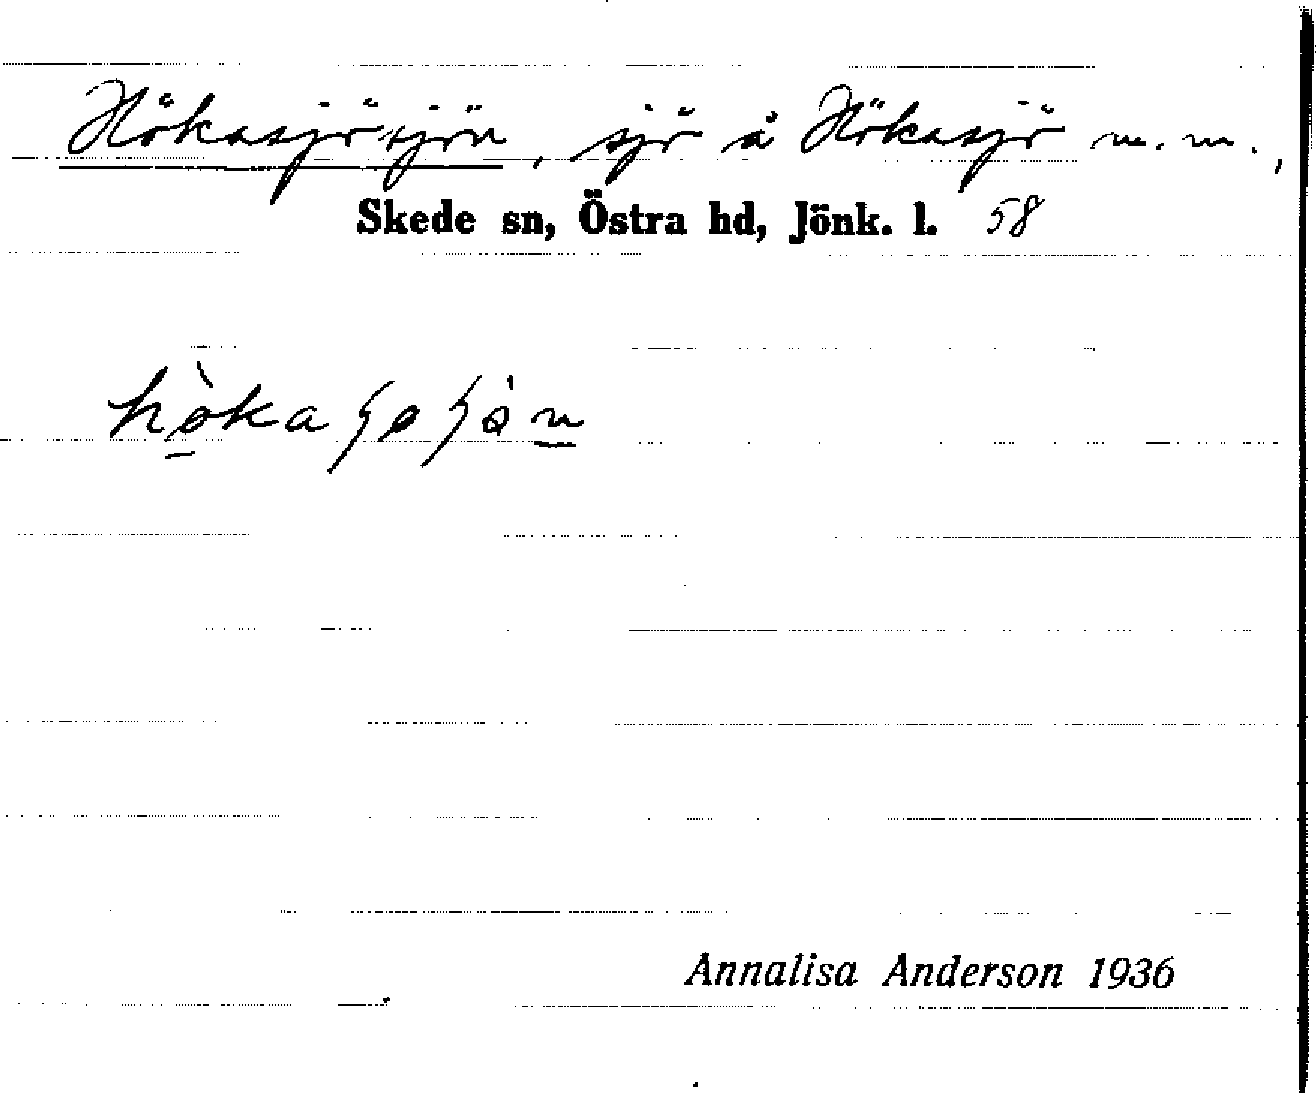 Hökasjösjön, sjö å Hökasjö m. m.,
Skede sn, Östra hd, Jönk. l. 58
Annalisa Anderson 1936